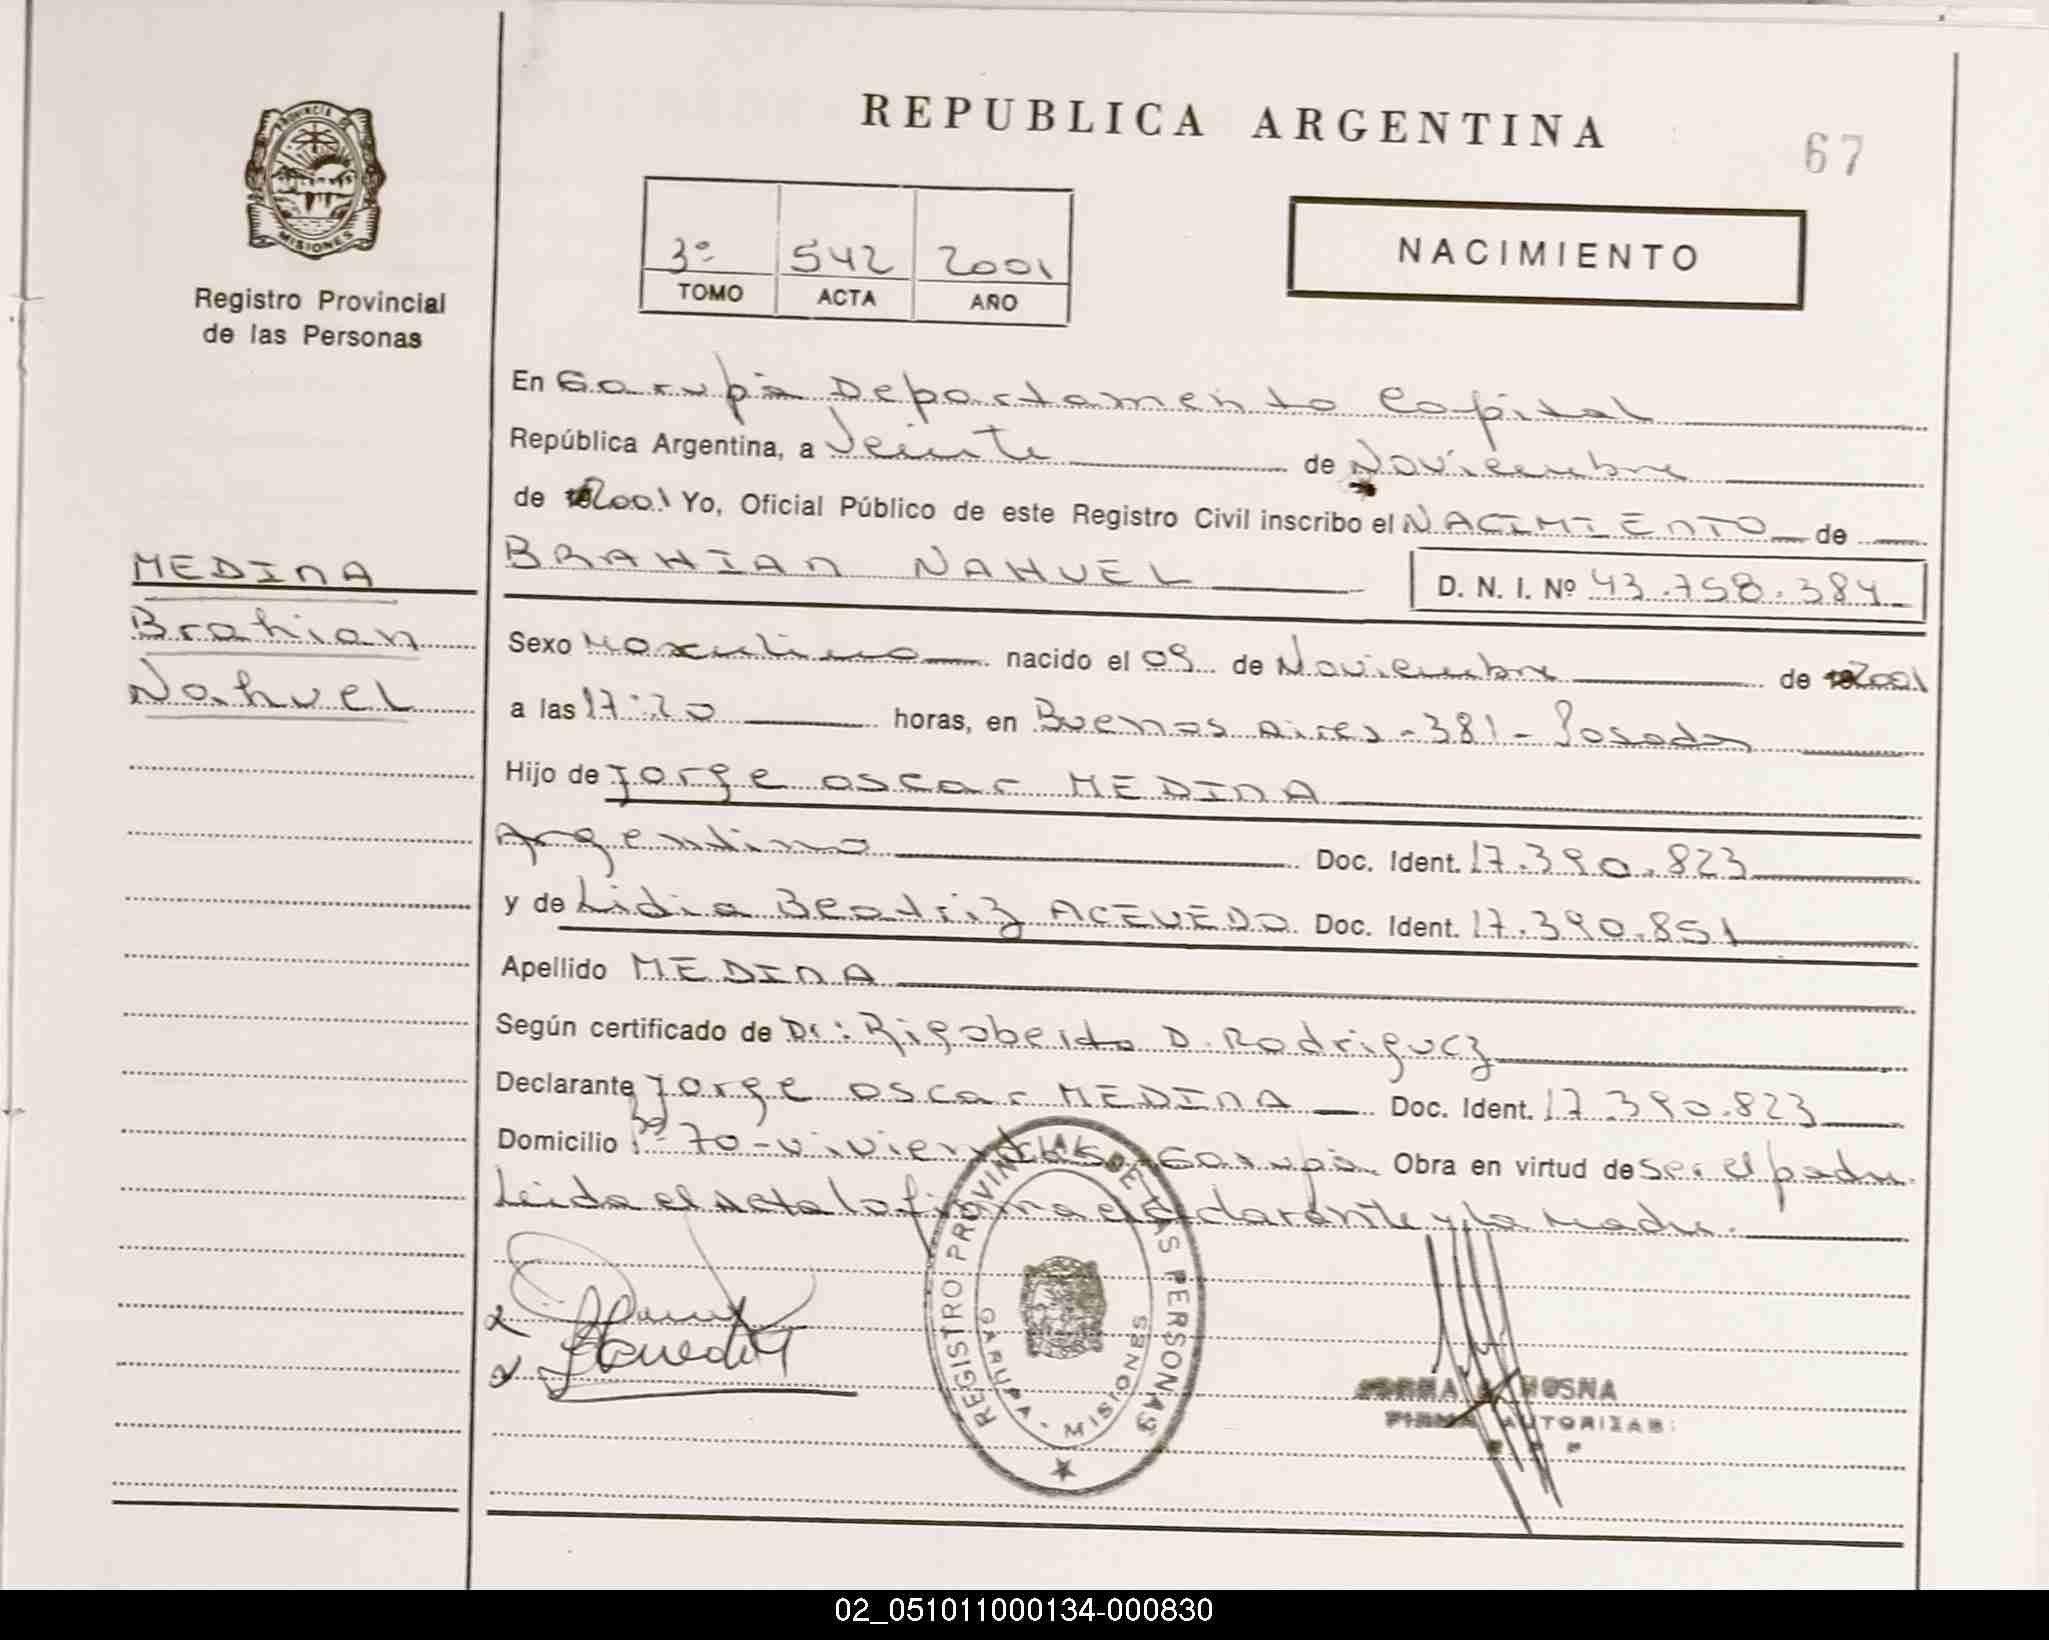 REPUBLICA ARGENTINA
67
PROVINCIA DE
MISIONES
Registro Provincial
de las Personas
3º 542 2001
TOMO ACTA AÑO
NACIMIENTO
En Garupá Departamento Capital
República Argentina, a Veinte de Noviembre
de 2001 Yo, Oficial Público de este Registro Civil inscribo el NACIMIENTO de
BRAHIAN NAHUEL D. N. I. Nº 43.758.384
MEDINA
Brahian
Nahuel
Sexo Masculino nacido el 09 de Noviembre de 2001
a las 17:20 horas, en Buenos Aires - 381 - Posadas
Hijo de Jorge Oscar MEDINA
Argentino Doc. Ident. 17.390.823
y de Lidia Beatriz ACEVEDO Doc. Ident. 17.390.851
Apellido MEDINA
Según certificado de Dr: Rigoberto D. Rodriguez
Declarante Jorge Oscar MEDINA Doc. Ident. 17.390.823
Domicilio Bº 70 - viviendas - Garupá. Obra en virtud de ser el padre.
Leida el acta la firma el declarante y la madre.
REGISTRO PROVINCIAL DE LAS PERSONAS
GARUPA - MISIONES
MOSNA
FIRMA AUTORIZAD
02_051011000134-000830